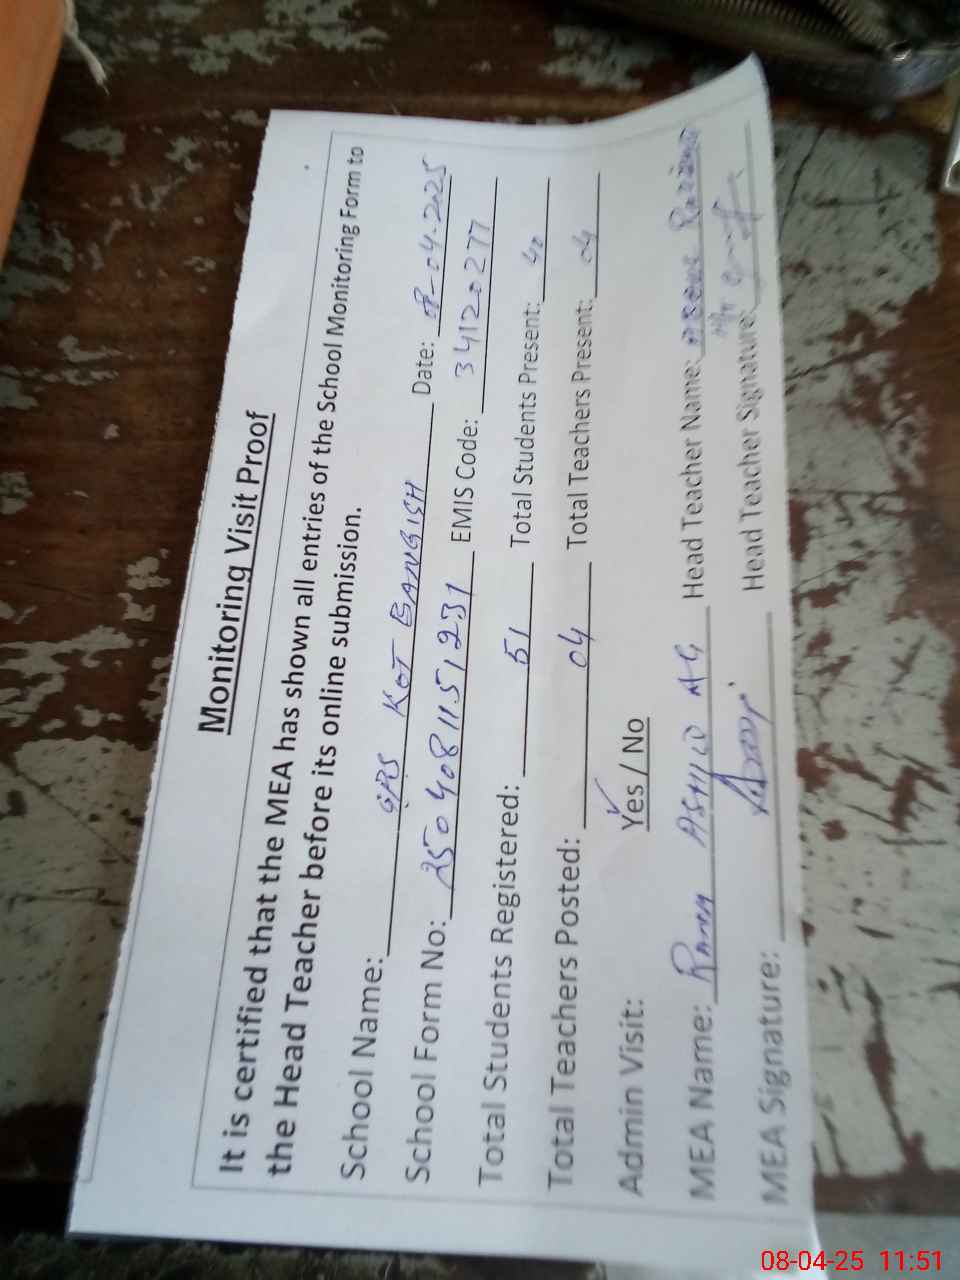 Monitoring Visit Proof
It is certified that the MEA has shown all entries of the School Monitoring Form to
the Head Teacher before its online submission.
School Name: GPS KOT BANGISH Date: 08-04-2025
School Form No: 2504081151231 EMIS Code: 34120277
Total Students Registered: 51 Total Students Present: 40
Total Teachers Posted: 04 Total Teachers Present: 04
Admin Visit: Yes / No
MEA Name: Head Teacher Name:
MEA Signature: Head Teacher Signature:
08-04-25 11:51